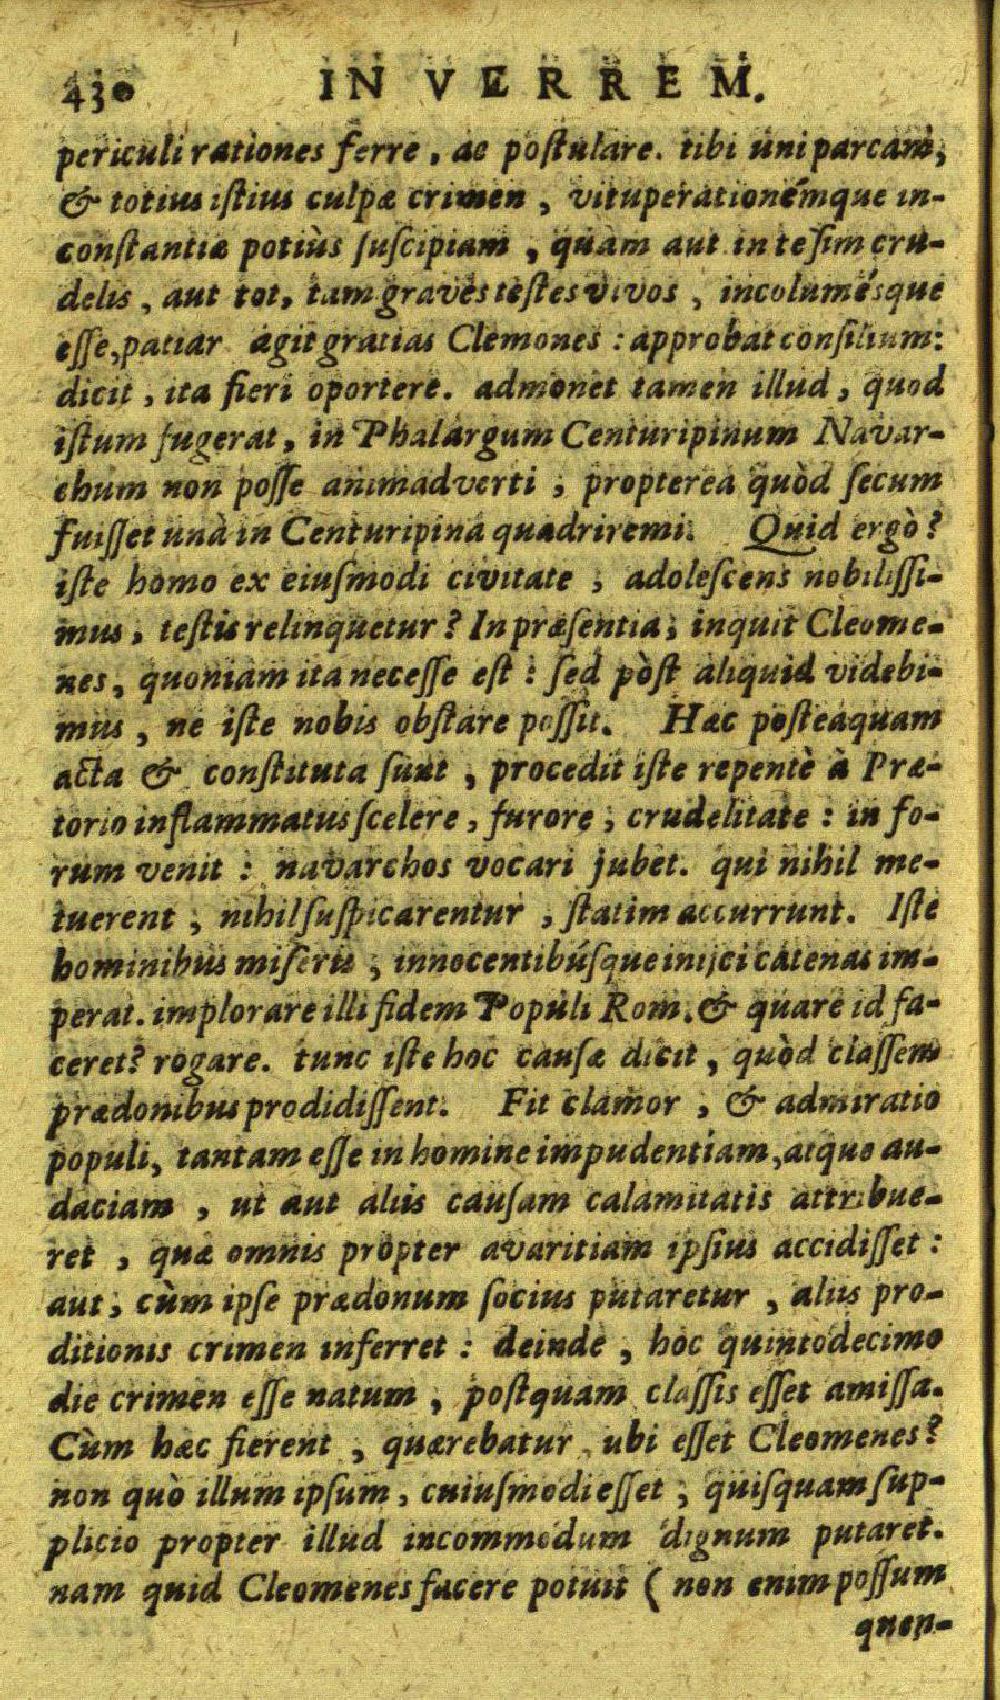 430 IN VERREM.
periculi rationes ferre, ac poſtulare. tibi uni parcam,
& totius iſtius culpæ crimen, vituperationémque in-
conſtantiæ potiùs ſuſcipiam, quàm aut in te ſim cru-
delis, aut tot, tam graves teſtes vivos, incolumésque
eſſe, patiar agit gratias Clemones: approbat conſilium:
dicit, ita fieri oportere. admonet tamen illud, quod
iſtum fugerat, in Phalargum Centuripinum Navar-
chum non poſſe animadverti; propterea quòd ſecum
fuiſſet unà in Centuripina quadriremi. Quid ergò?
iſte homo ex eiuſmodi civitate, adoleſcens nobiliſſi-
mus, teſtis relinquetur? In præſentia, inquit Cleome-
nes, quoniam ita neceſſe eſt: ſed pòſt aliquid videbi-
mus, ne iſte nobis obſtare poſſit. Hæc poſteaquam
acta & conſtituta ſunt, procedit iſte repentè à Præ-
torio inflammatus ſcelere, furore, crudelitate: in fo-
rum venit: navarchos vocari jubet. qui nihil me-
tuerent, nihil ſuſpicarentur, ſtatim accurrunt. Iſte
hominibus miſeris, innocentibúſque inijci catenas im-
perat. implorare illi fidem Populi Rom. & quare id fa-
ceret? rogare. tunc iſte hoc cauſæ dicit, quòd claſſem
prædonibus prodidiſſent. Fit clamor, & admiratio
populi, tantam eſſe in homine impudentiam, atque au-
daciam, ut aut aliis cauſam calamitatis attribue-
ret, quæ omnis propter avaritiam ipſius accidiſſet:
aut, cùm ipſe prædonum ſocius putaretur, aliis pro-
ditionis crimen inferret: deinde, hoc quintodecimo
die crimen eſſe natum, poſtquam claſſis eſſet amiſſa.
Cùm hæc fierent, quærebatur, ubi eſſet Cleomenes?
non quò illum ipſum, cuiuſmodi eſſet, quiſquam ſup-
plicio propter illud incommodum dignum putaret.
nam quid Cleomenes facere potuit (non enim poſſum
quen-